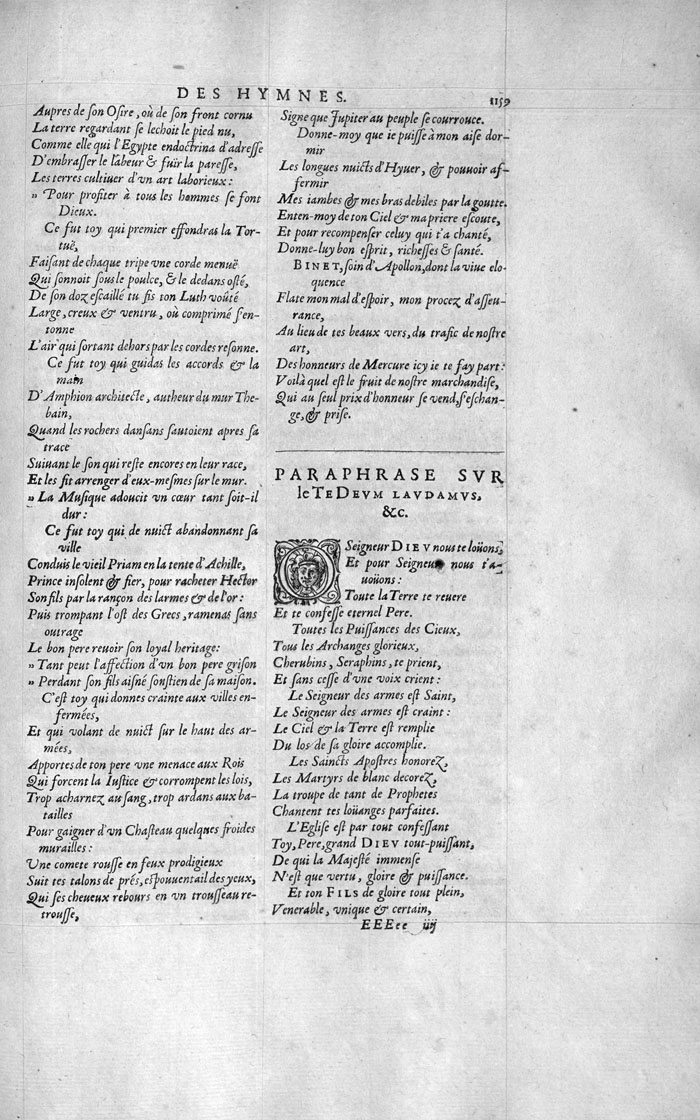 DES HYMNES. 1159
Aupres de ſon Oſire, où de ſon front cornu
La terre regardant ſe lechoit le pied nu,
Comme elle qui l'Egypte endoctrina d'adreſſe
D'embraſſer le labeur & fuir la pareſſe,
Les terres cultiuer d'vn art laborieux:
» Pour profiter à tous les hommes ſe font
Dieux.
Ce fut toy qui premier effondras la Tor-
tuë,
Faiſant de chaque tripe vne corde menuë
Qui ſonnoit ſous le poulce, & le dedans oſté,
De ſon doz eſcaillé tu fis ton Luth voûté
Large, creux & ventru, où comprimé s'en-
tonne
L'air qui ſortant dehors par les cordes reſonne.
Ce fut toy qui guidas les accords & la
main
D'Amphion architecte, autheur du mur The-
bain,
Quand les rochers danſans ſautoient apres ſa
trace
Suiuant le ſon qui reſte encores en leur race,
Et les fit arrenger d'eux-meſmes ſur le mur.
» La Muſique adoucit vn cœur tant ſoit-il
dur:
Ce fut toy qui de nuict abandonnant ſa
ville
Conduis le vieil Priam en la tente d'Achille,
Prince inſolent & fier, pour racheter Hector
Son fils par la rançon des larmes & de l'or:
Puis trompant l'oſt des Grecs, ramenas ſans
outrage
Le bon pere reuoir ſon loyal heritage:
» Tant peut l'affection d'vn bon pere griſon
» Perdant ſon fils aiſné ſouſtien de ſa maiſon.
C'eſt toy qui donnes crainte aux villes en-
fermées,
Et qui volant de nuict ſur le haut des ar-
mées,
Apportes de ton pere vne menace aux Rois
Qui forcent la Iuſtice & corrompent les lois,
Trop acharnez au ſang, trop ardans aux ba-
tailles
Pour gaigner d'vn Chaſteau quelques froides
murailles:
Vne comete rouſſe en feux prodigieux
Suit tes talons de prés, eſpouuentail des yeux,
Qui ſes cheueux rebours en vn trouſſeau re-
trouſſe,
Signe que Jupiter au peuple ſe courrouce.
Donne-moy que ie puiſſe à mon aiſe dor-
mir
Les longues nuicts d'Hyuer, & pouuoir af-
fermir
Mes iambes & mes bras debiles par la goutte.
Enten-moy de ton Ciel & ma priere eſcoute,
Et pour recompenſer celuy qui t'a chanté,
Donne-luy bon eſprit, richeſſes & ſanté.
BINET, ſoin d'Apollon, dont la viue elo-
quence
Flate mon mal d'eſpoir, mon procez d'aſſeu-
rance,
Au lieu de tes beaux vers, du trafic de noſtre
art,
Des honneurs de Mercure icy ie te fay part:
Voilà quel eſt le fruit de noſtre marchandiſe,
Qui au ſeul prix d'honneur ſe vend, s'eſchan-
ge, & priſe.
PARAPHRASE SVR
le TE DEVM LAVDAMVS,
&c.
O Seigneur DIEV nous te loüons,
Et pour Seigneur nous t'a-
uoüons:
Toute la Terre te reuere
Et te confeſſe eternel Pere.
Toutes les Puiſſances des Cieux,
Tous les Archanges glorieux,
Cherubins, Seraphins, te prient,
Et ſans ceſſe d'vne voix crient:
Le Seigneur des armes eſt Saint,
Le Seigneur des armes eſt craint:
Le Ciel & la Terre eſt remplie
Du los de ſa gloire accomplie.
Les Saincts Apoſtres honorez,
Les Martyrs de blanc decorez,
La troupe de tant de Prophetes
Chantent tes loüanges parfaites.
L'Egliſe eſt par tout confeſſant
Toy, Pere, grand DIEV tout-puiſſant,
De qui la Majeſté immenſe
N'eſt que vertu, gloire & puiſſance.
Et ton FILS de gloire tout plein,
Venerable, vnique & certain,
EEEee iiij